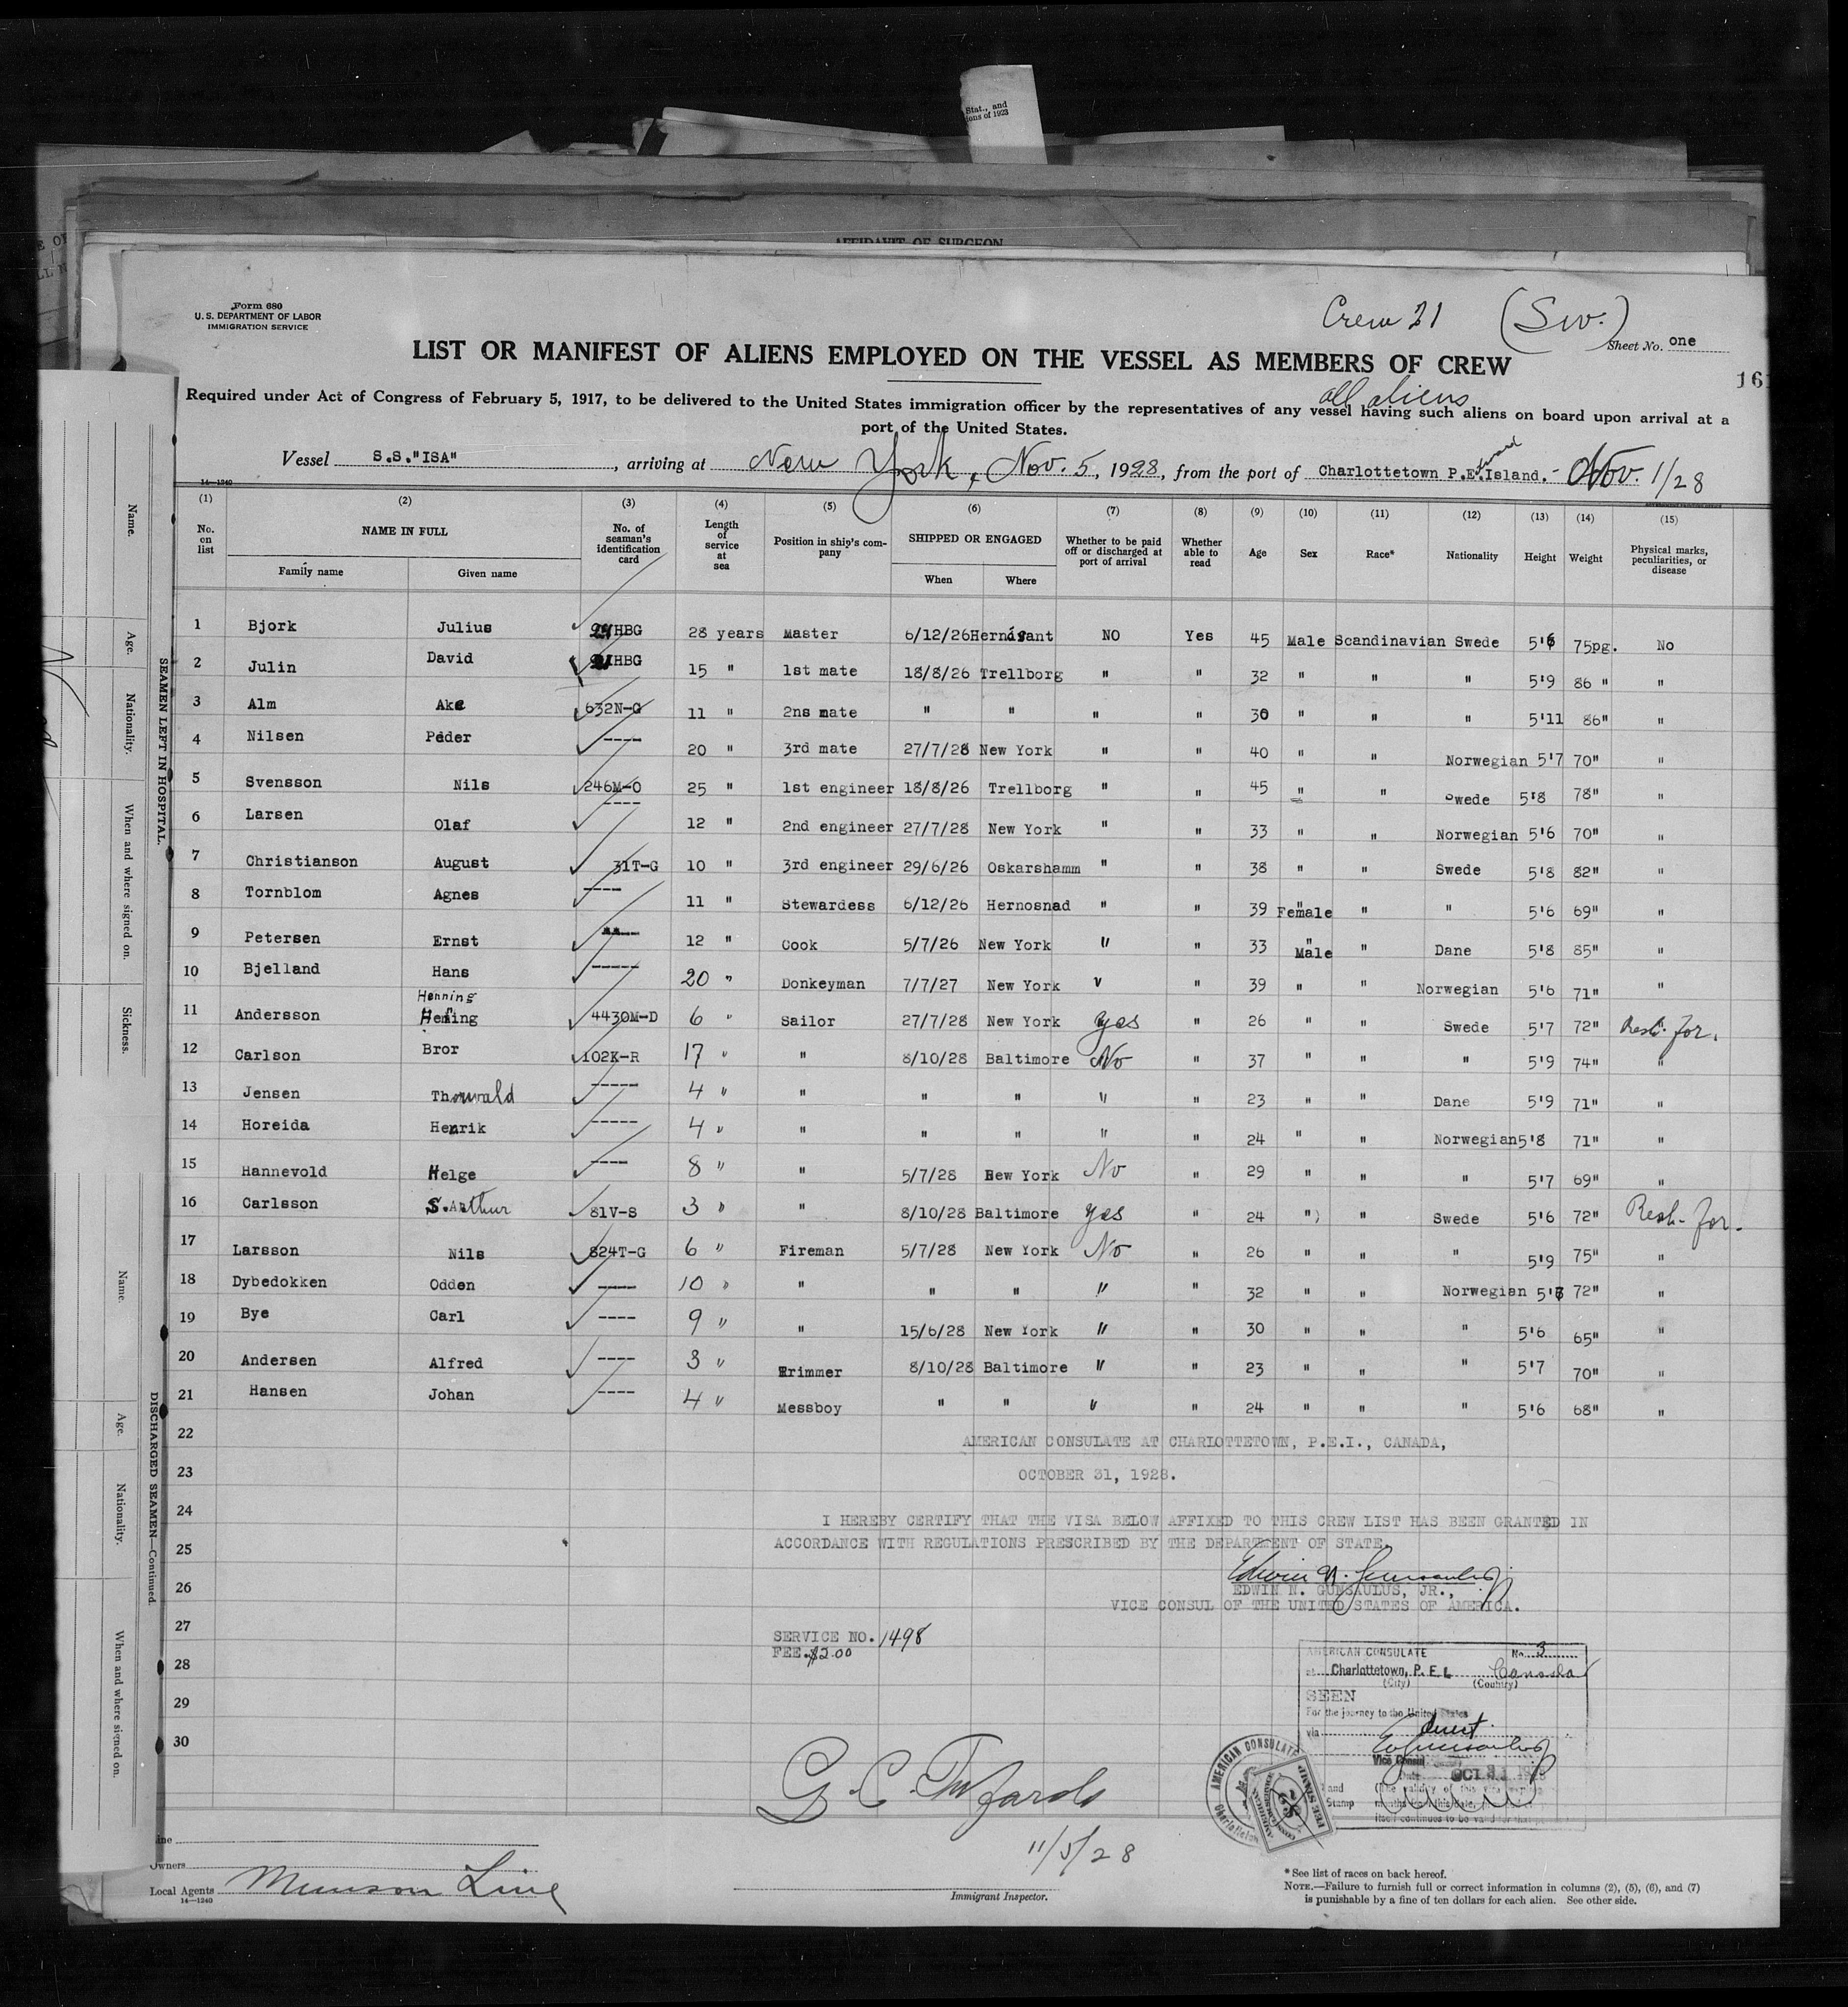 Stat., and
ions of 1923
AFFIDAVIT OF SURGEON
Form 680
U. S. DEPARTMENT OF LABOR
IMMIGRATION SERVICE
Crew 21 (Sw.)
Sheet No. one
LIST OR MANIFEST OF ALIENS EMPLOYED ON THE VESSEL AS MEMBERS OF CREW
161
all aliens
Required under Act of Congress of February 5, 1917, to be delivered to the United States immigration officer by the representatives of any vessel having such aliens on board upon arrival at a
port of the United States.
Vessel S.S."ISA", arriving at New York, Nov. 5, 1928, from the port of Charlottetown P.E.Island.- Nov. 1/28
14-1240
(1) (2) (3) (4) (5) (6) (7) (8) (9) (10) (11) (12) (13) (14) (15)
No. on list NAME IN FULL Family name Given name No. of seaman's identification card Length of service at sea Position in ship's company SHIPPED OR ENGAGED When Where Whether to be paid off or discharged at port of arrival Whether able to read Age Sex Race* Nationality Height Weight Physical marks, peculiarities, or disease
1 Bjork Julius HBG 28 years Master 6/12/26 Hernösant NO Yes 45 Male Scandinavian Swede 5'6 75pg. No
2 Julin David HBG 15 " 1st mate 18/8/26 Trellborg " " 32 " " " 5'9 86 " "
3 Alm Ake 632N-G 11 " 2ns mate " " " " 30 " " " 5'11 86" "
4 Nilsen Peder ---- 20 " 3rd mate 27/7/28 New York " " 40 " " Norwegian 5'7 70" "
5 Svensson Nils 246M-O 25 " 1st engineer 18/8/26 Trellborg " " 45 " " Swede 5'8 78" "
6 Larsen Olaf ---- 12 " 2nd engineer 27/7/28 New York " " 33 " " Norwegian 5'6 70" "
7 Christianson August 31T-G 10 " 3rd engineer 29/6/26 Oskarshamm " " 38 " " Swede 5'8 82" "
8 Tornblom Agnes ---- 11 " Stewardess 6/12/26 Hernosnad " " 39 Female " " 5'6 69" "
9 Petersen Ernst ---- 12 " Cook 5/7/26 New York " " 33 " Male " Dane 5'8 85" "
10 Bjelland Hans ----- 20 " Donkeyman 7/7/27 New York " " 39 " " Norwegian 5'6 71" "
Henning
11 Andersson 4430M-D 6 " Sailor 27/7/28 New York yes " 26 " " Swede 5'7 72" Resh. for.
12 Carlson Bror 102K-R 17 " " 8/10/28 Baltimore No " 37 " " " 5'9 74" "
13 Jensen Thorwald ----- 4 " " " " " " 23 " " Dane 5'9 71" "
14 Horeida Henrik ----- 4 " " " " " " 24 " " Norwegian 5'8 71" "
15 Hannevold Helge ---- 8 " " 5/7/28 New York No " 29 " " " 5'7 69" "
16 Carlsson S.Arthur 81V-S 3 " " 8/10/28 Baltimore yes " 24 " " Swede 5'6 72" Resh. for.
17 Larsson Nils 824T-G 6 " Fireman 5/7/28 New York No " 26 " " " 5'9 75" "
18 Dybedokken Odden ---- 10 " " " " " " 32 " " Norwegian 72" "
19 Bye Carl ---- 9 " " 15/6/28 New York " " 30 " " " 5'6 65" "
20 Andersen Alfred ---- 3 " Trimmer 8/10/28 Baltimore " " 23 " " " 5'7 70" "
21 Hansen Johan ---- 4 " Messboy " " " " 24 " " " 5'6 68" "
22 AMERICAN CONSULATE AT CHARLOTTETOWN, P.E.I., CANADA,
23 OCTOBER 31, 1928.
24 I HEREBY CERTIFY THAT THE VISA BELOW AFFIXED TO THIS CREW LIST HAS BEEN GRANTED IN
25 ACCORDANCE WITH REGULATIONS PRESCRIBED BY THE DEPARTMENT OF STATE.
Edwin N. Gunsaulus Jr
26 EDWIN N. GUNSAULUS, JR.,
VICE CONSUL OF THE UNITED STATES OF AMERICA.
27 SERVICE NO. 1498
FEE.$2.00
28
29
30
AMERICAN CONSULATE No. 3
at Charlottetown, P. E. I. Canada
(City) (Country)
SEEN
For the journey to the United States
via direct.
Vice Consul
Date OCT 31 1928
itself continues to be valid for that
AMERICAN CONSULATE
FEE STAMP
11/5/28
Immigrant Inspector.
Owners
Local Agents Munson Line
14-1240
* See list of races on back hereof.
NOTE.—Failure to furnish full or correct information in columns (2), (5), (6), and (7)
is punishable by a fine of ten dollars for each alien. See other side.
SEAMEN LEFT IN HOSPITAL.
Name. Age. Nationality. When and where signed on. Sickness.
DISCHARGED SEAMEN—Continued.
Name. Age. Nationality. When and where signed on.